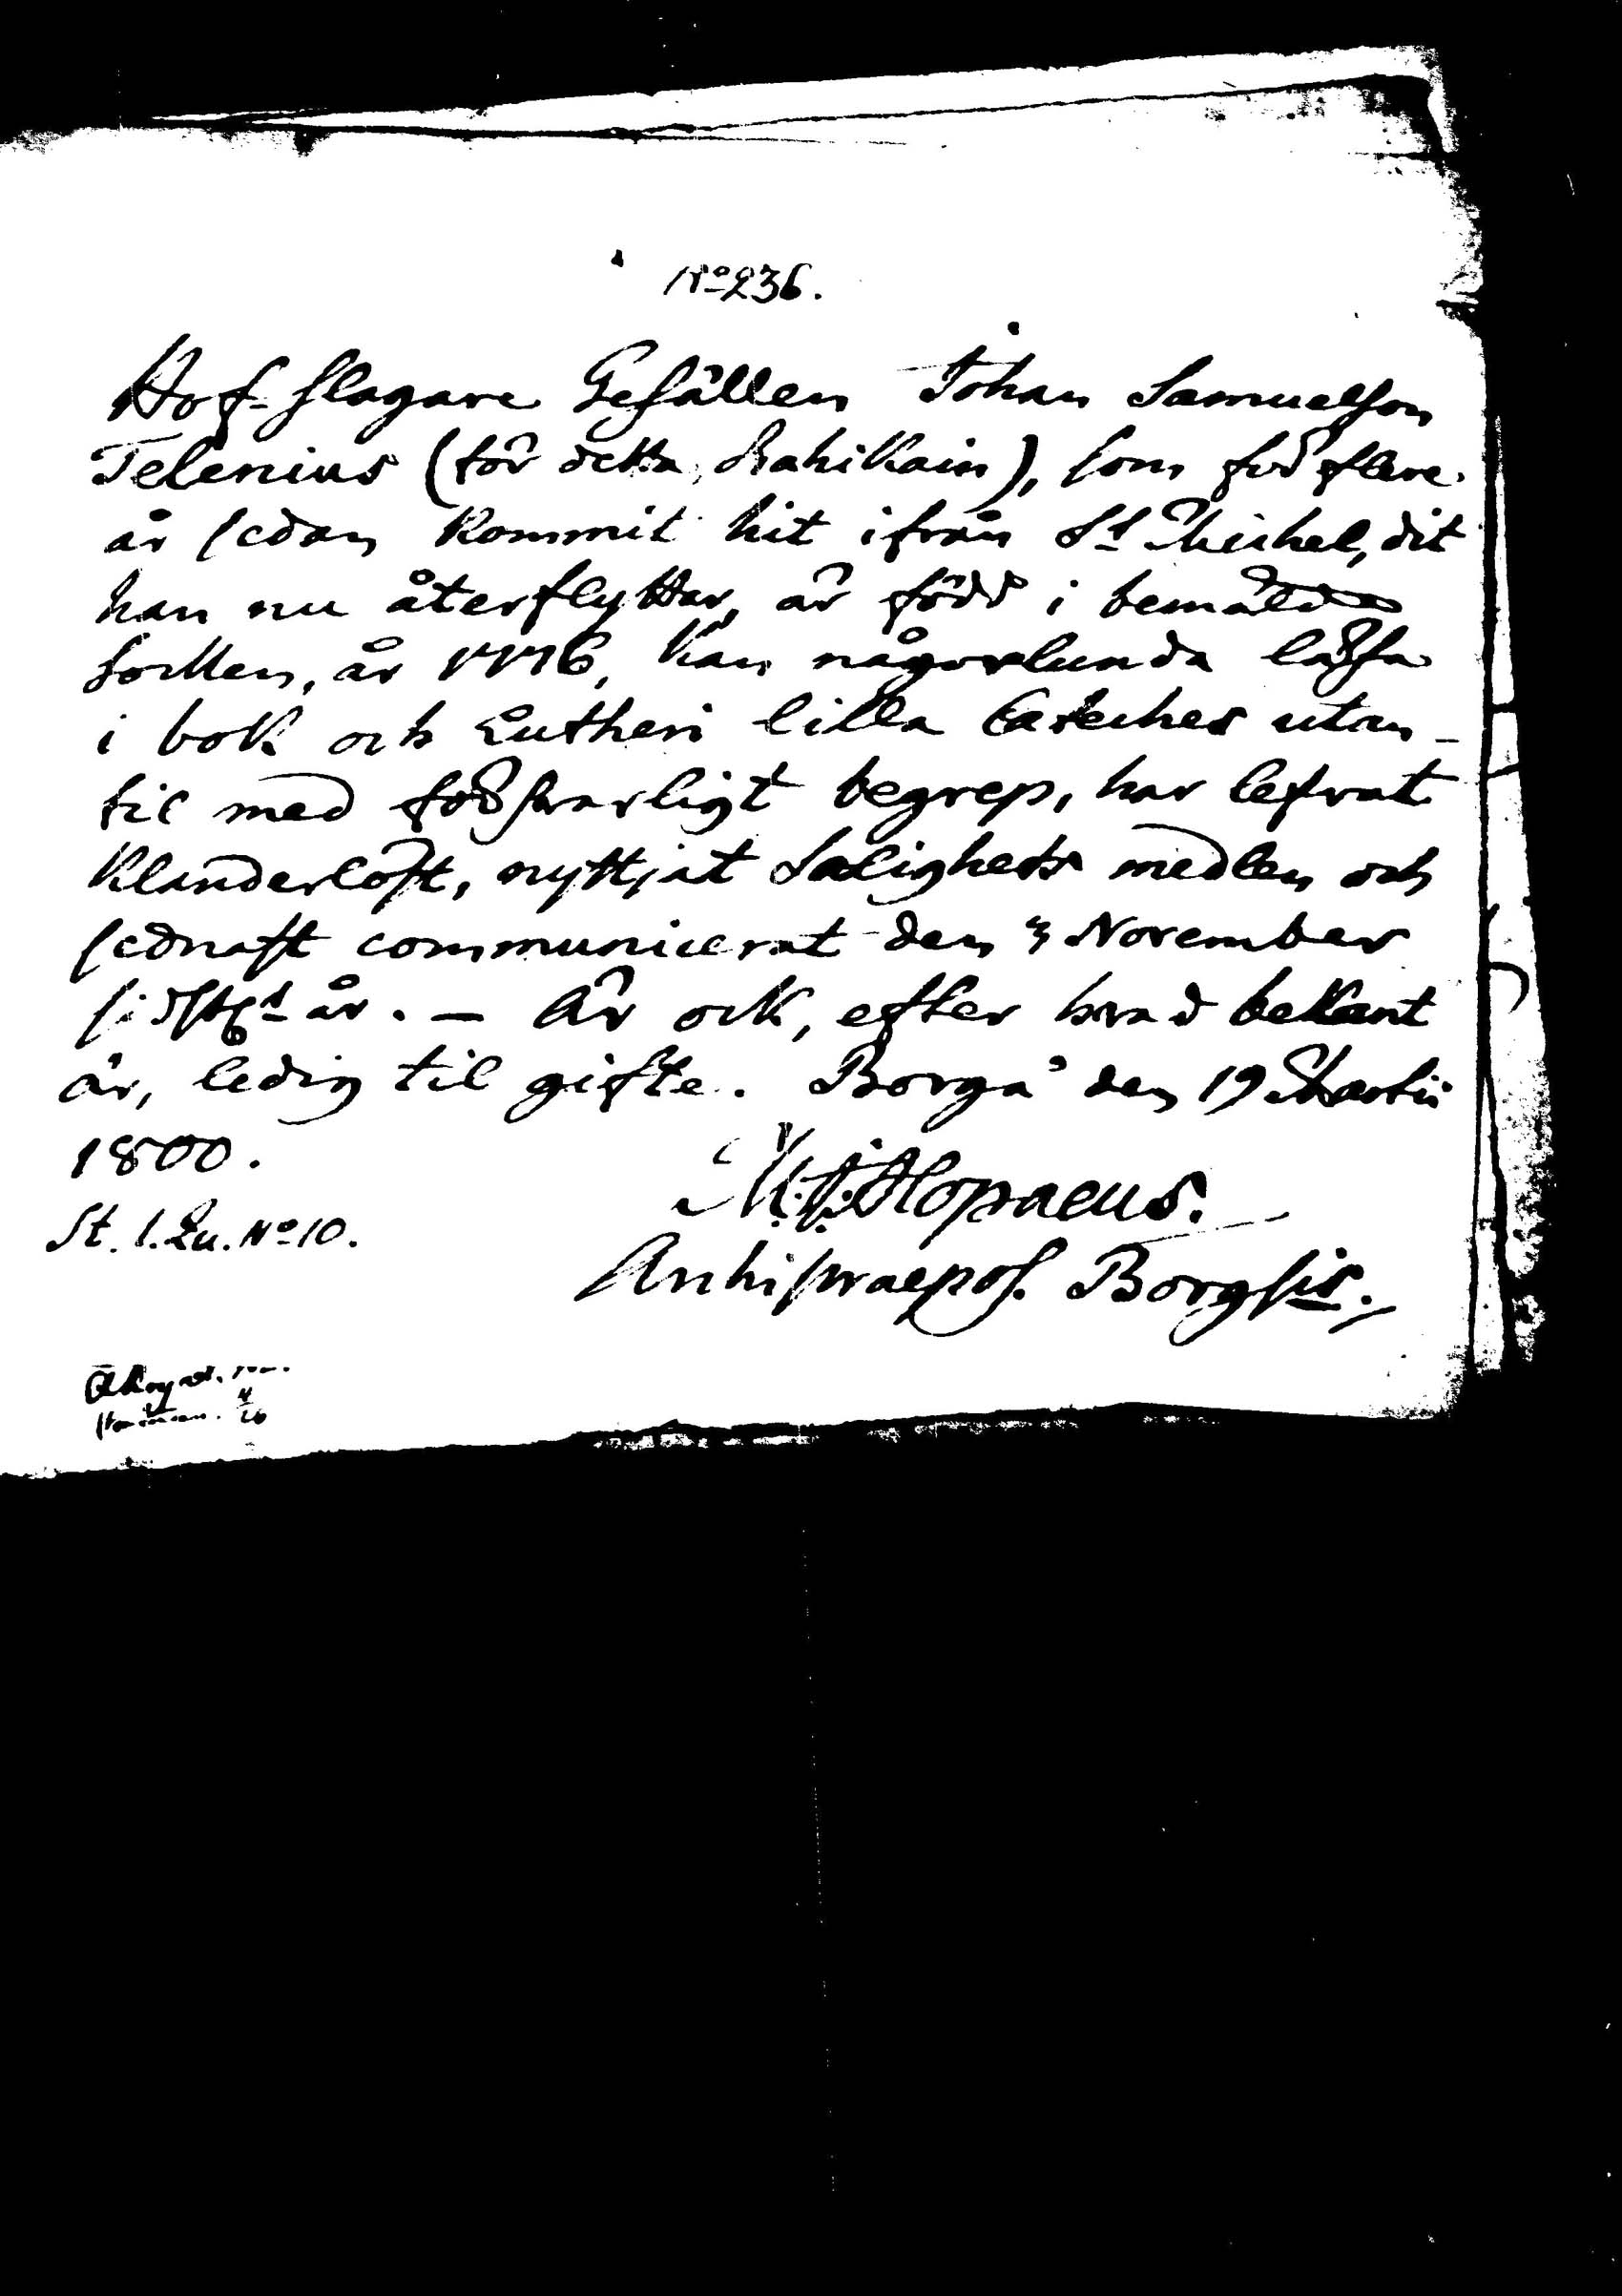 No 236.
Hof-slagare Gesällen Johan Samuelson
Telenius (för detta, Rahikain), som för flere
år sedan kommit hit ifrån St Michel, dit
han nu återflyttar, är född i bemälde
Socken, år 1776, kan någorlunda läsa
i bok och Lutheri lilla Cateches utan-
til med försvarligt begrep, har lefvat
klanderlöst, nyttjat Salighets medlen och
sednast communicerat den 3 November
sidstl. år. — Är ock, efter hvad bekant
är, ledig til gifte. Borgå den 19 Martii
1800.
M. J. Alopaeus.
St. 1. Qu. No 10.
Archipraepos. Borgsis.